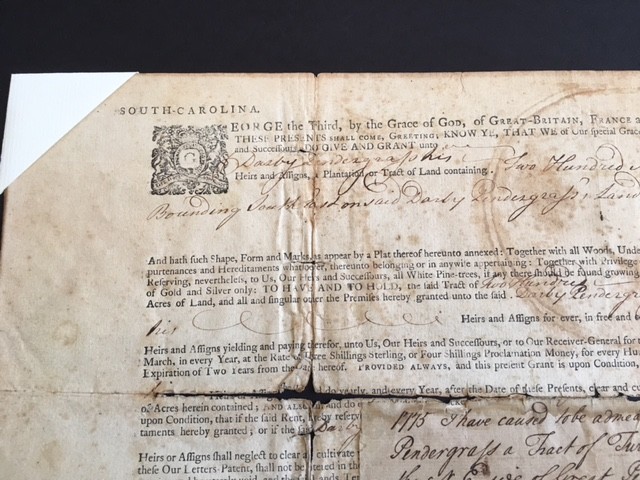 SOUTH-CAROLINA.
GEORGE the Third, by the Grace of GOD, of GREAT-BRITAIN, FRANCE a
THESE PRESENTS SHALL COME, GREETING: KNOW YE, THAT WE of Our special Grace
and Successours, DO GIVE AND GRANT unto
Darby Pendergrass his
Heirs and Assigns, a Plantation or Tract of Land containing Two Hundred
Bounding South East on said Darby Pendergrass's Land
And hath such Shape, Form and Marks, as appear by a Plat thereof hereunto annexed: Together with all Woods, Under
purtenances and Hereditaments whatsoever, thereunto belonging or in anywise appertaining: Together with Privilege
Reserving, nevertheless, to Us, Our Heirs and Successours, all White Pine-trees, if any there should be found growing
of Gold and Silver only: TO HAVE AND TO HOLD, the said Tract of Two Hundred
Acres of Land, and all and singular other the Premises hereby granted unto the said Darby Pendergr
his Heirs and Assigns for ever, in free and co
Heirs and Assigns yielding and paying therefor, unto Us, Our Heirs and Successours, or to Our Receiver-General for t
March, in every Year, at the Rate of Three Shillings Sterling, or Four Shillings Proclamation Money, for every Hu
Expiration of Two Years from the Date hereof. PROVIDED ALWAYS, and this present Grant is upon Condition,
his Heirs and Assigns do yearly, and every Year, after the Date of these Presents, clear and cu
of Acres herein contained; AND ALSO
upon Condition, that if the said Rent, hereby reserv
taments hereby granted; or if the said Darby
Heirs or Assigns shall neglect to clear and cultivate
these Our Letters Patent, shall not be entered in the
1775 I have caused to be adme
Pendergrass a Tract of Tw